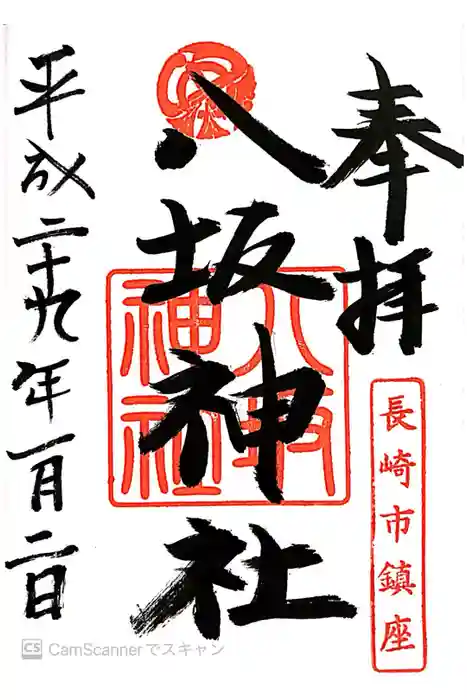 奉拝
長崎市鎮座
八坂神社
八坂神社
平成二十九年一月二日
CS CamScannerでスキャン